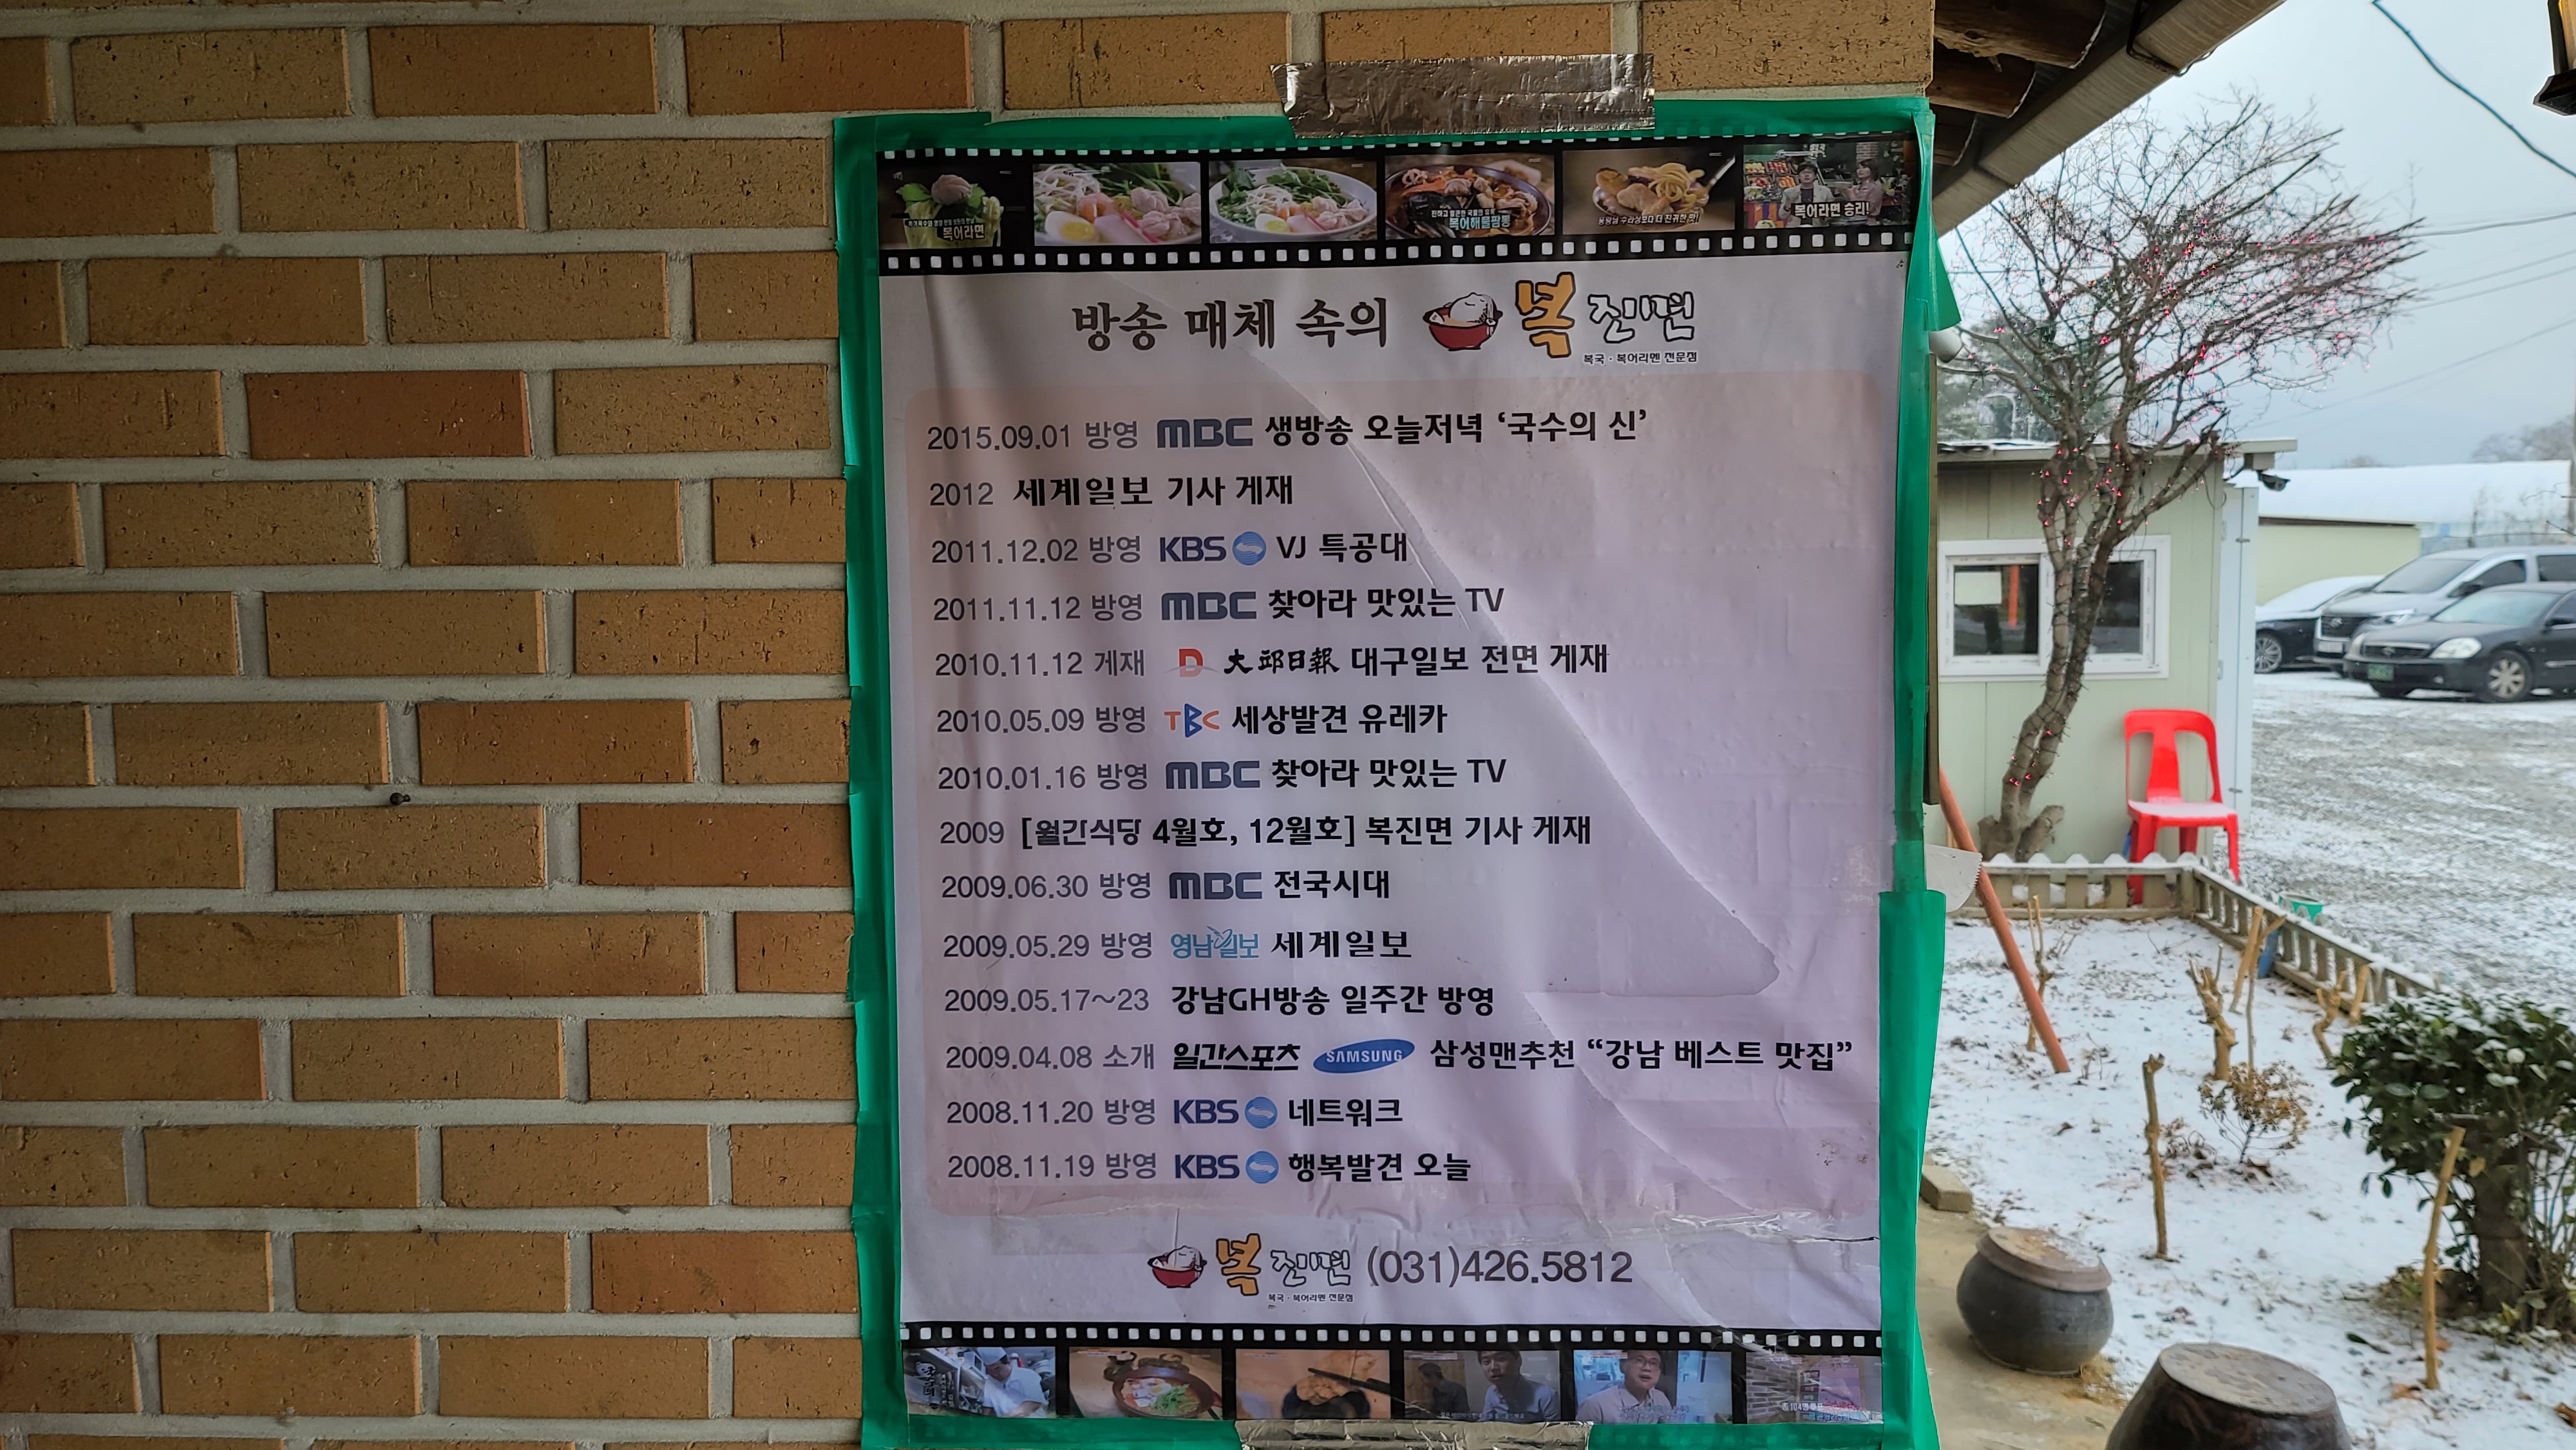 복어라면
복어해물짬뽕
복어라면 승리!
방송 매체 속의 복진면
복국 · 복어라멘 전문점
2015.09.01 방영 MBC 생방송 오늘저녁 ‘국수의 신’
2012 세계일보 기사 게재
2011.12.02 방영 KBS VJ 특공대
2011.11.12 방영 MBC 찾아라 맛있는 TV
2010.11.12 게재 D 大邱日報 대구일보 전면 게재
2010.05.09 방영 TBC 세상발견 유레카
2010.01.16 방영 MBC 찾아라 맛있는 TV
2009 [월간식당 4월호, 12월호] 복진면 기사 게재
2009.06.30 방영 MBC 전국시대
2009.05.29 방영 영남일보 세계일보
2009.05.17~23 강남GH방송 일주간 방영
2009.04.08 소개 일간스포츠 SAMSUNG 삼성맨추천 “강남 베스트 맛집”
2008.11.20 방영 KBS 네트워크
2008.11.19 방영 KBS 행복발견 오늘
복진면 (031)426.5812
복국 · 복어라멘 전문점